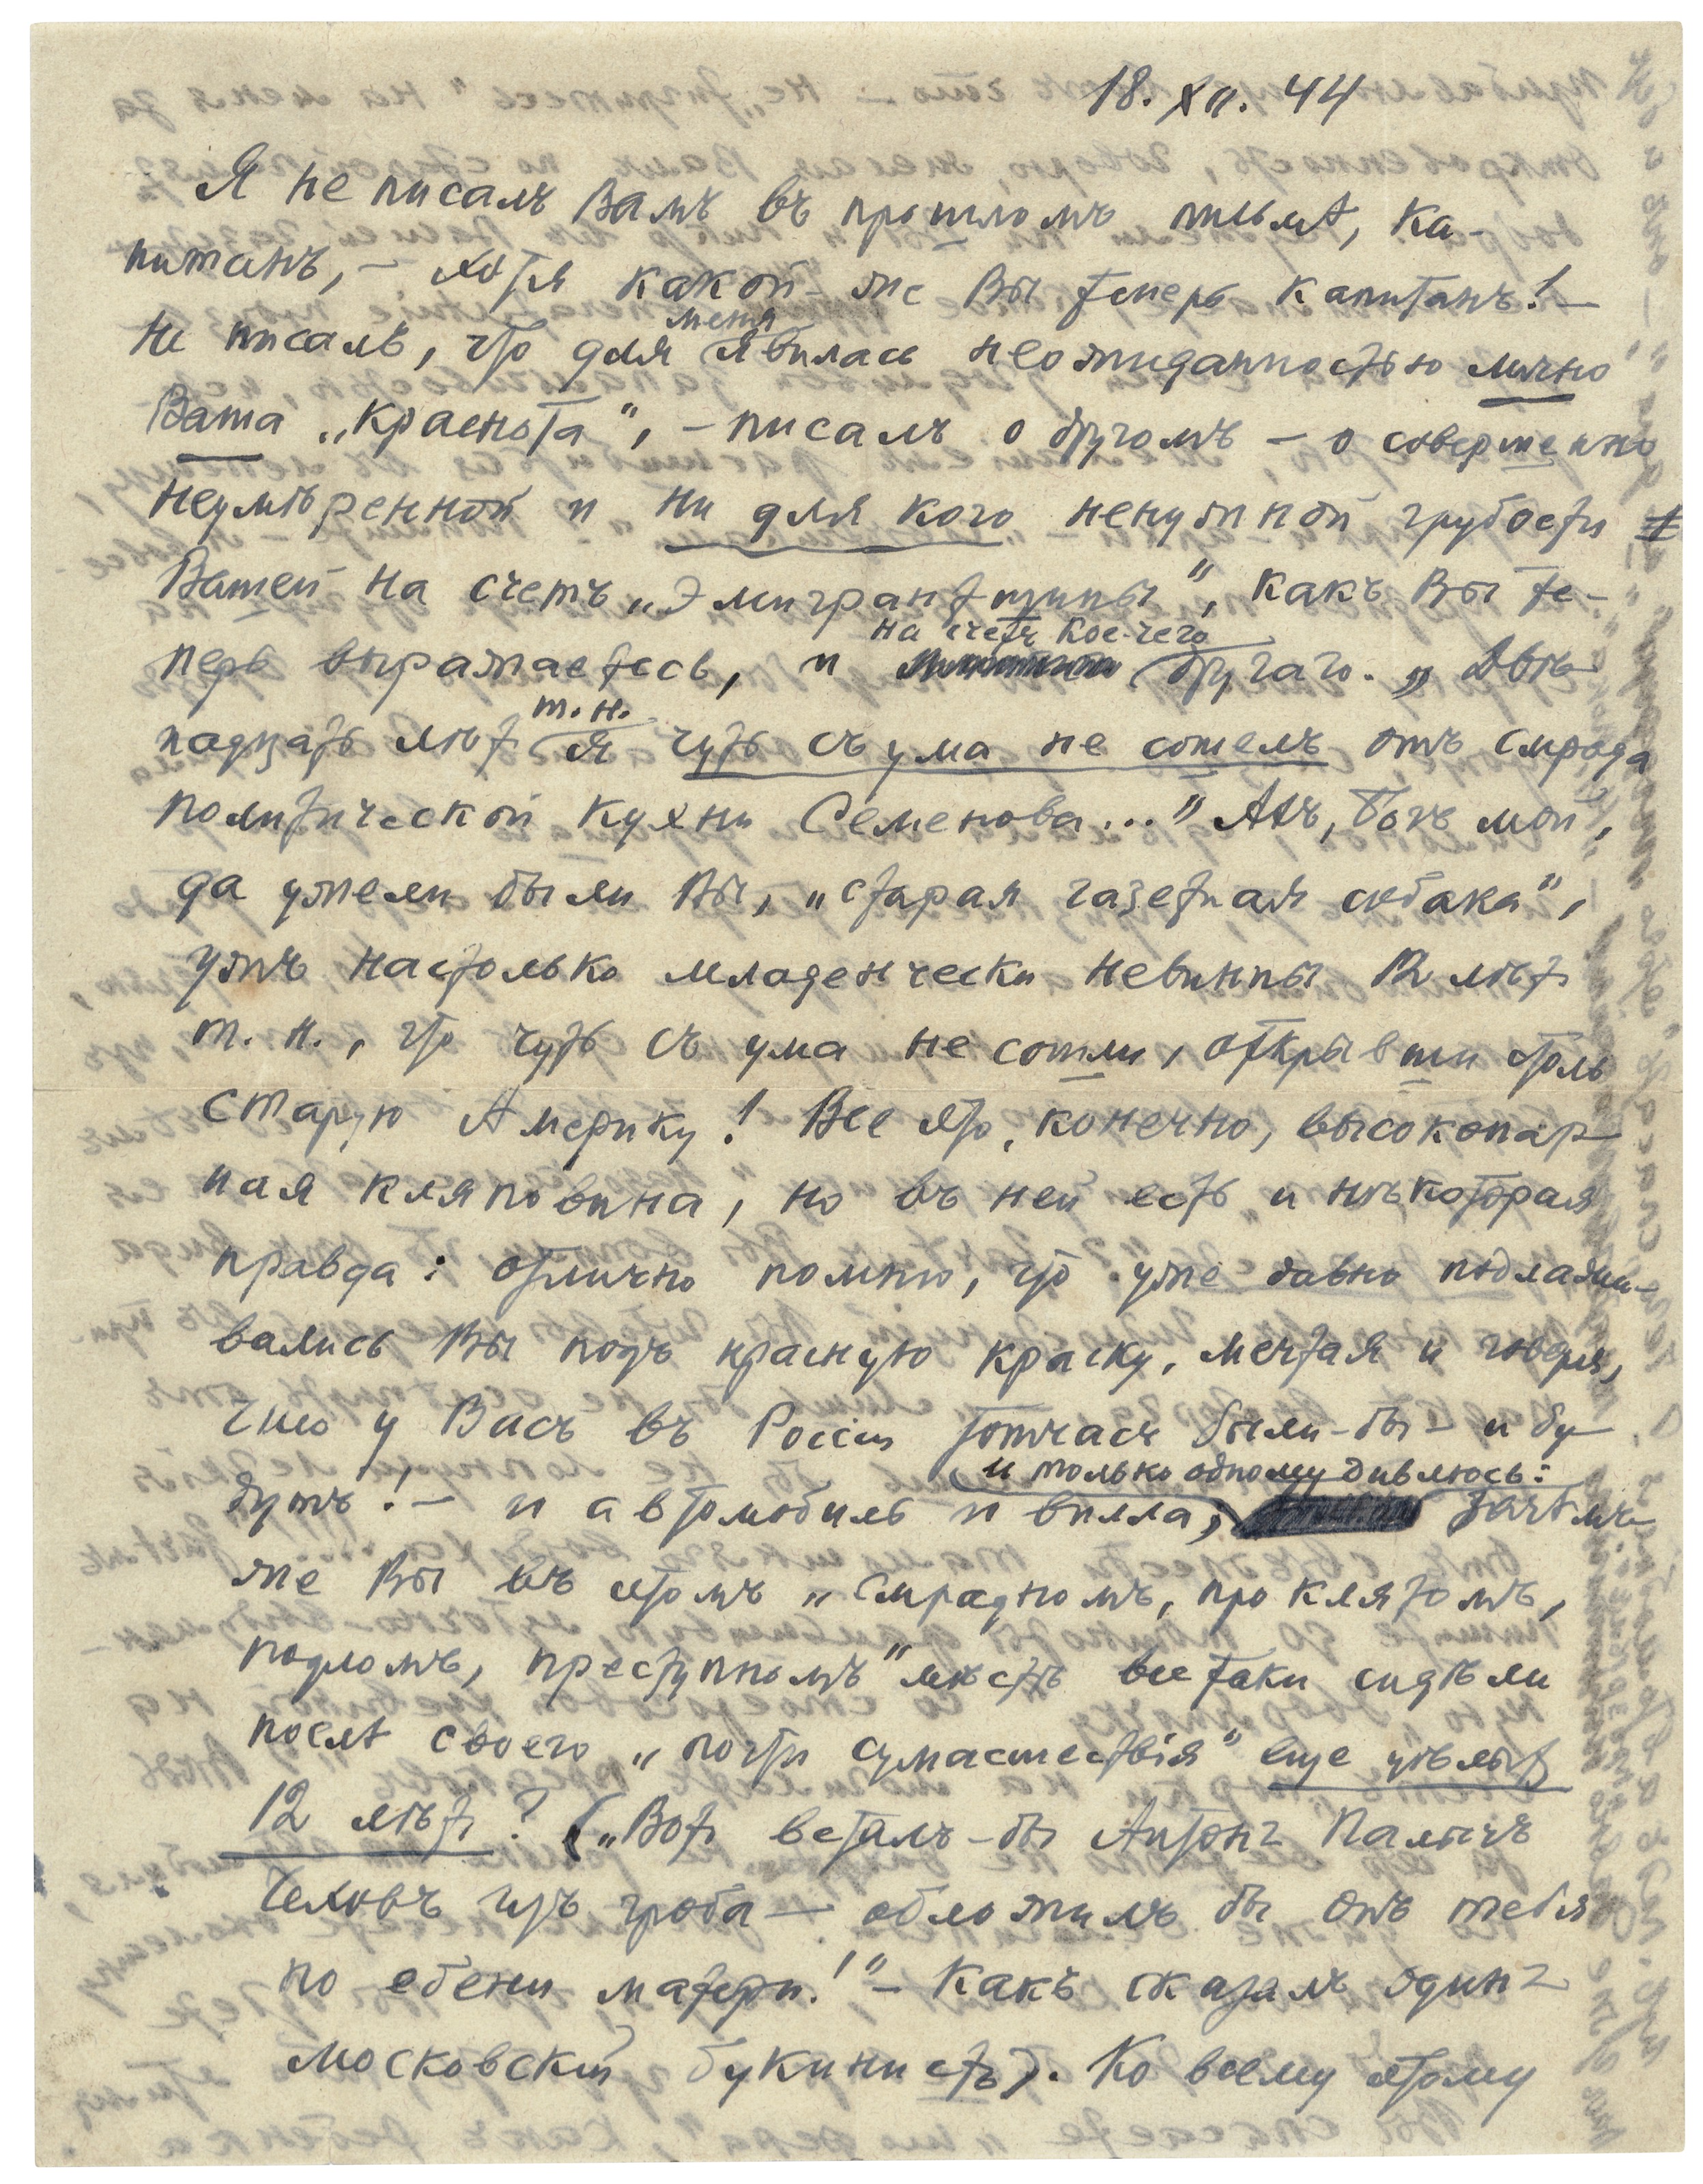 18. XII. 44
Я не писалъ Вамъ въ прошломъ письмѣ, ка-
питанъ, – хотя какой-же Вы теперь капитанъ! –
не писалъ, что для меня явилась неожиданностью лично
Ваша „краснота“, – писалъ о другомъ – о совершенно
неумѣренной и ни для кого ненужной грубости
Вашей на счетъ „Эмигрантщины“, какъ Вы те-
перь выражаетесь, и на счетъ кое-чего другаго. „Двѣ-
надцать лѣтъ т. н. я чуть съ ума не сошелъ отъ смрада
политической кухни Семенова...“ Ахъ, Богъ мой,
да ужели были Вы, „старая газетная собака“,
ужъ настолько младенчески невинны 12 лѣтъ
т. н., что чуть съ ума не сошли, открывши столь
старую Америку! Все это, конечно, высокопар-
ная кляповина, но въ ней есть и нѣкоторая
правда: отлично помню, что уже давно подлажи-
вались Вы подъ красную краску, мечтая и говоря,
что у Васъ въ Россіи тотчасъ были-бы – и бу-
дутъ! – и автомобиль и вилла, и только одному дивлюсь: зачѣмъ-
же Вы въ этомъ „смрадномъ, проклятомъ,
подломъ, преступномъ“ мѣстѣ все таки сидѣли
послѣ своего „почти сумасшествія“ еще цѣлыхъ
12 лѣтъ? („Вотъ всталъ-бы Антонъ Палычъ
Чеховъ изъ гроба – обложилъ бы онъ тебя
по ебени матери!“ – какъ сказалъ одинъ
московскій букинистъ). Ко всему этому